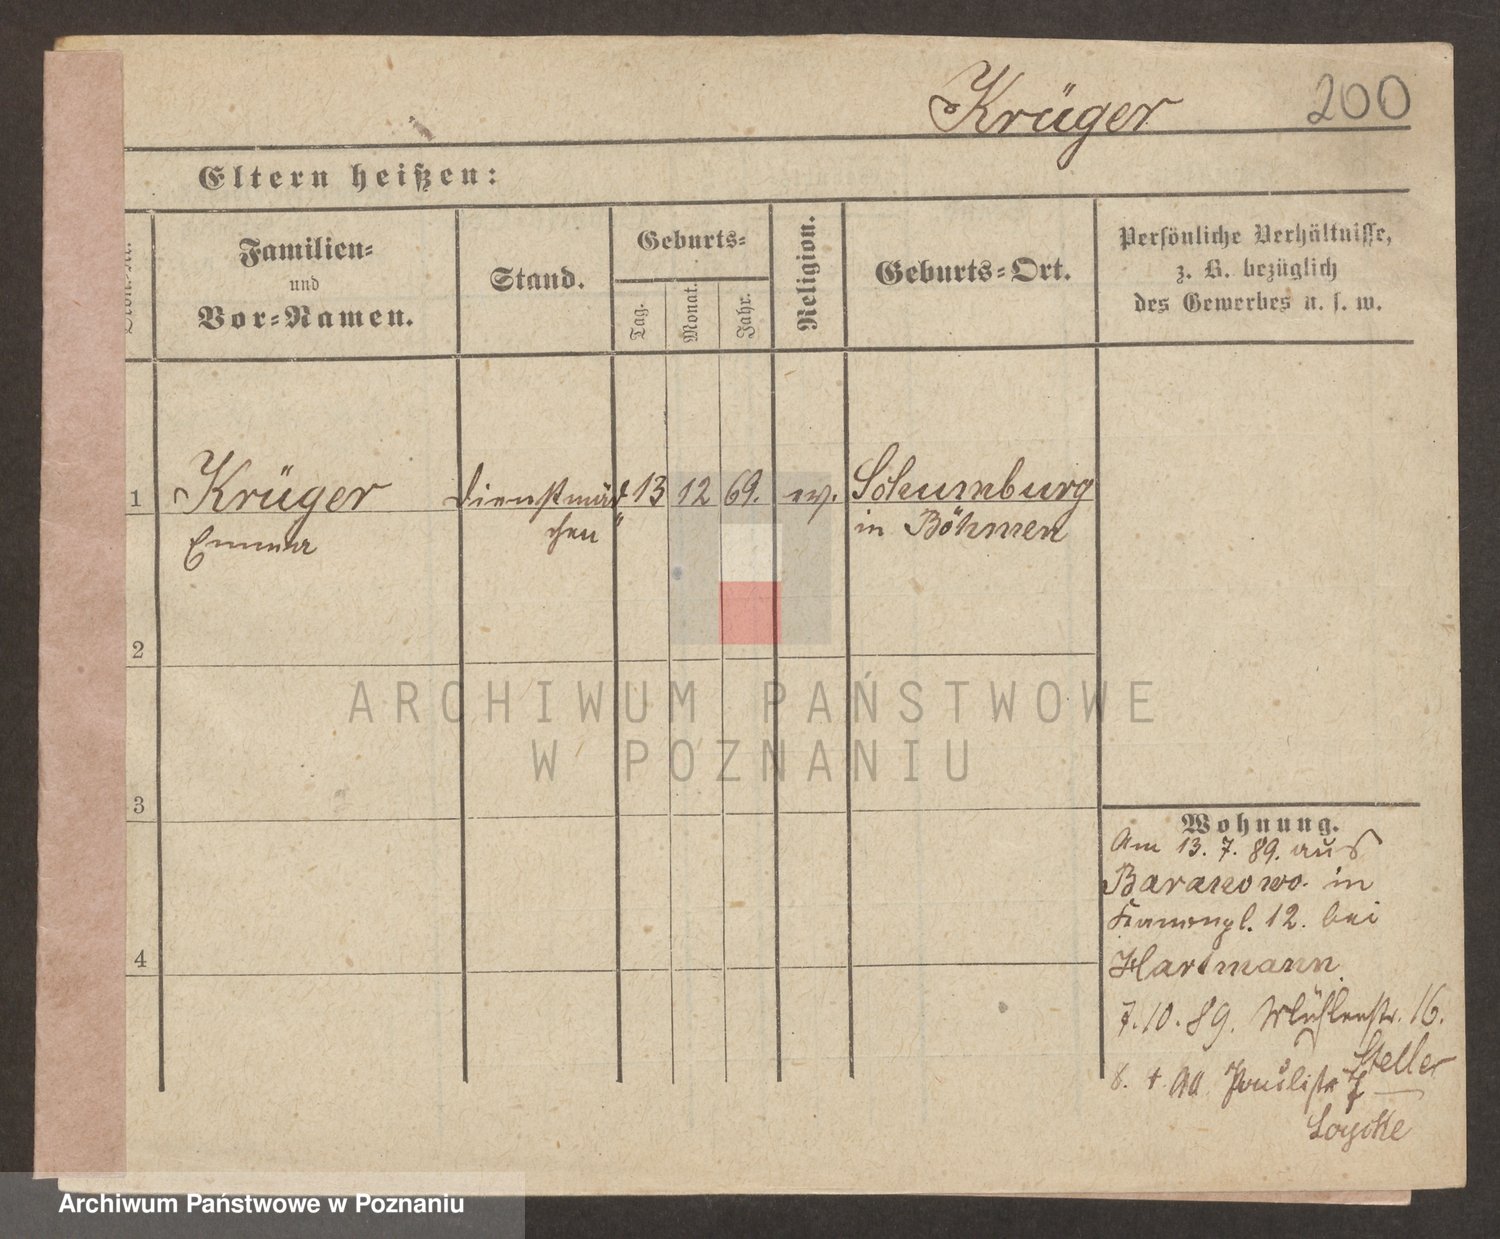 Krüger 200
Eltern heißen:
Familien=
und
Vor=Namen.
Stand.
Geburts=
Tag.
Monat.
Jahr.
Religion.
Geburts=Ort.
Persönliche Verhältnisse,
z. B. bezüglich
des Gewerbes u. s. w.
1 Krüger Dienstmäd 13 12 69. ev. Schumburg
Emma chen in Böhmen
2
3
4
ARCHIWUM PAŃSTWOWE
W POZNANIU
Wohnung.
Am 13. 7. 89. aus
Baranowo in
Kanonpl. 12. bei
Hartmann
7. 10. 89. Mühlenstr. 16.
Steller
8. 4. 90. Paulistr 7
Archiwum Państwowe w Poznaniu